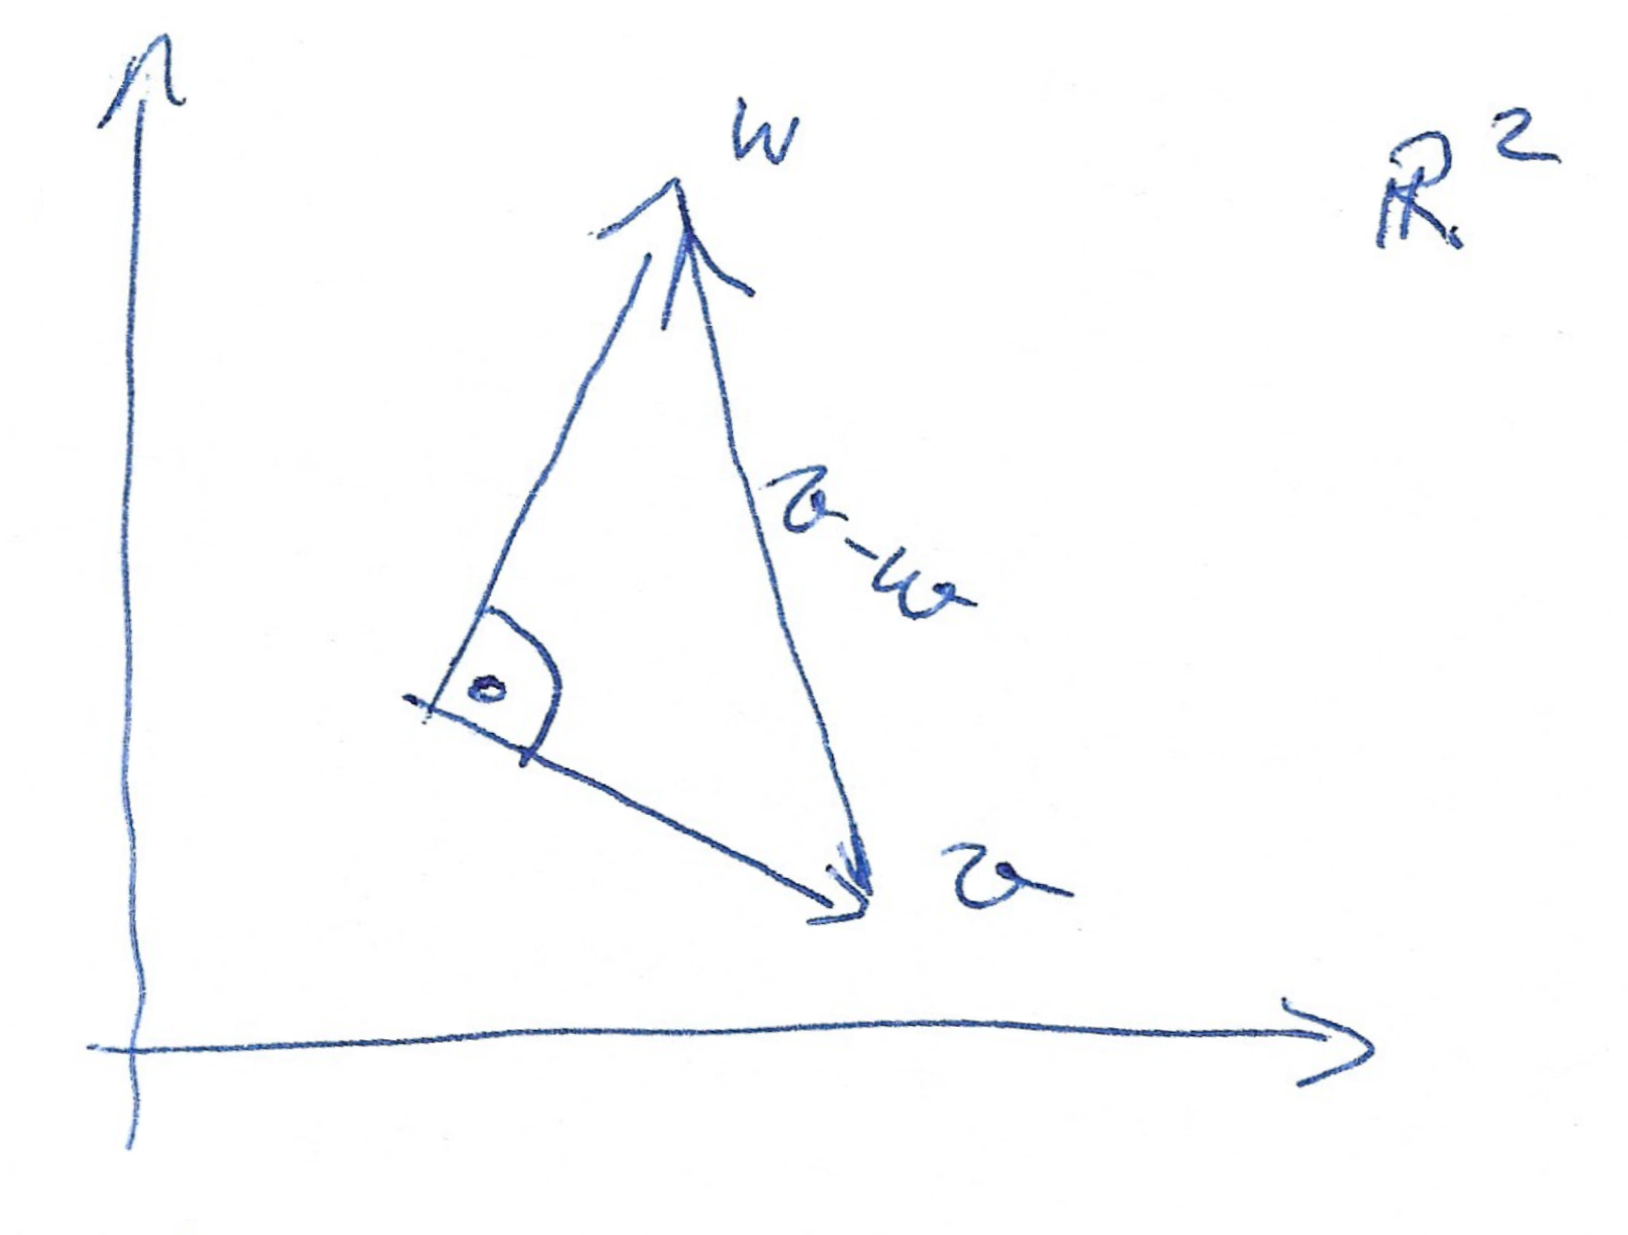 w
ℝ²
v-w
v